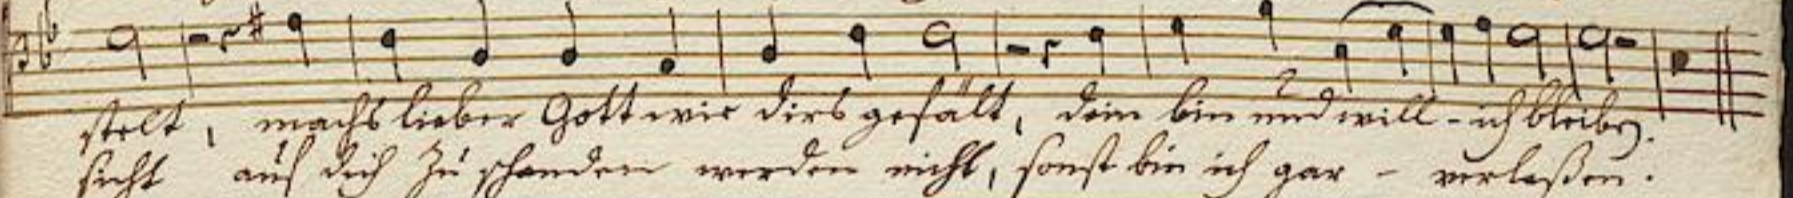 stelt, machs lieber Gott wie dirs gefält, dein bin und will - ich bleiben.
sicht auf dich zu schanden werden nicht, sonst bin ich gar - verlaßen.